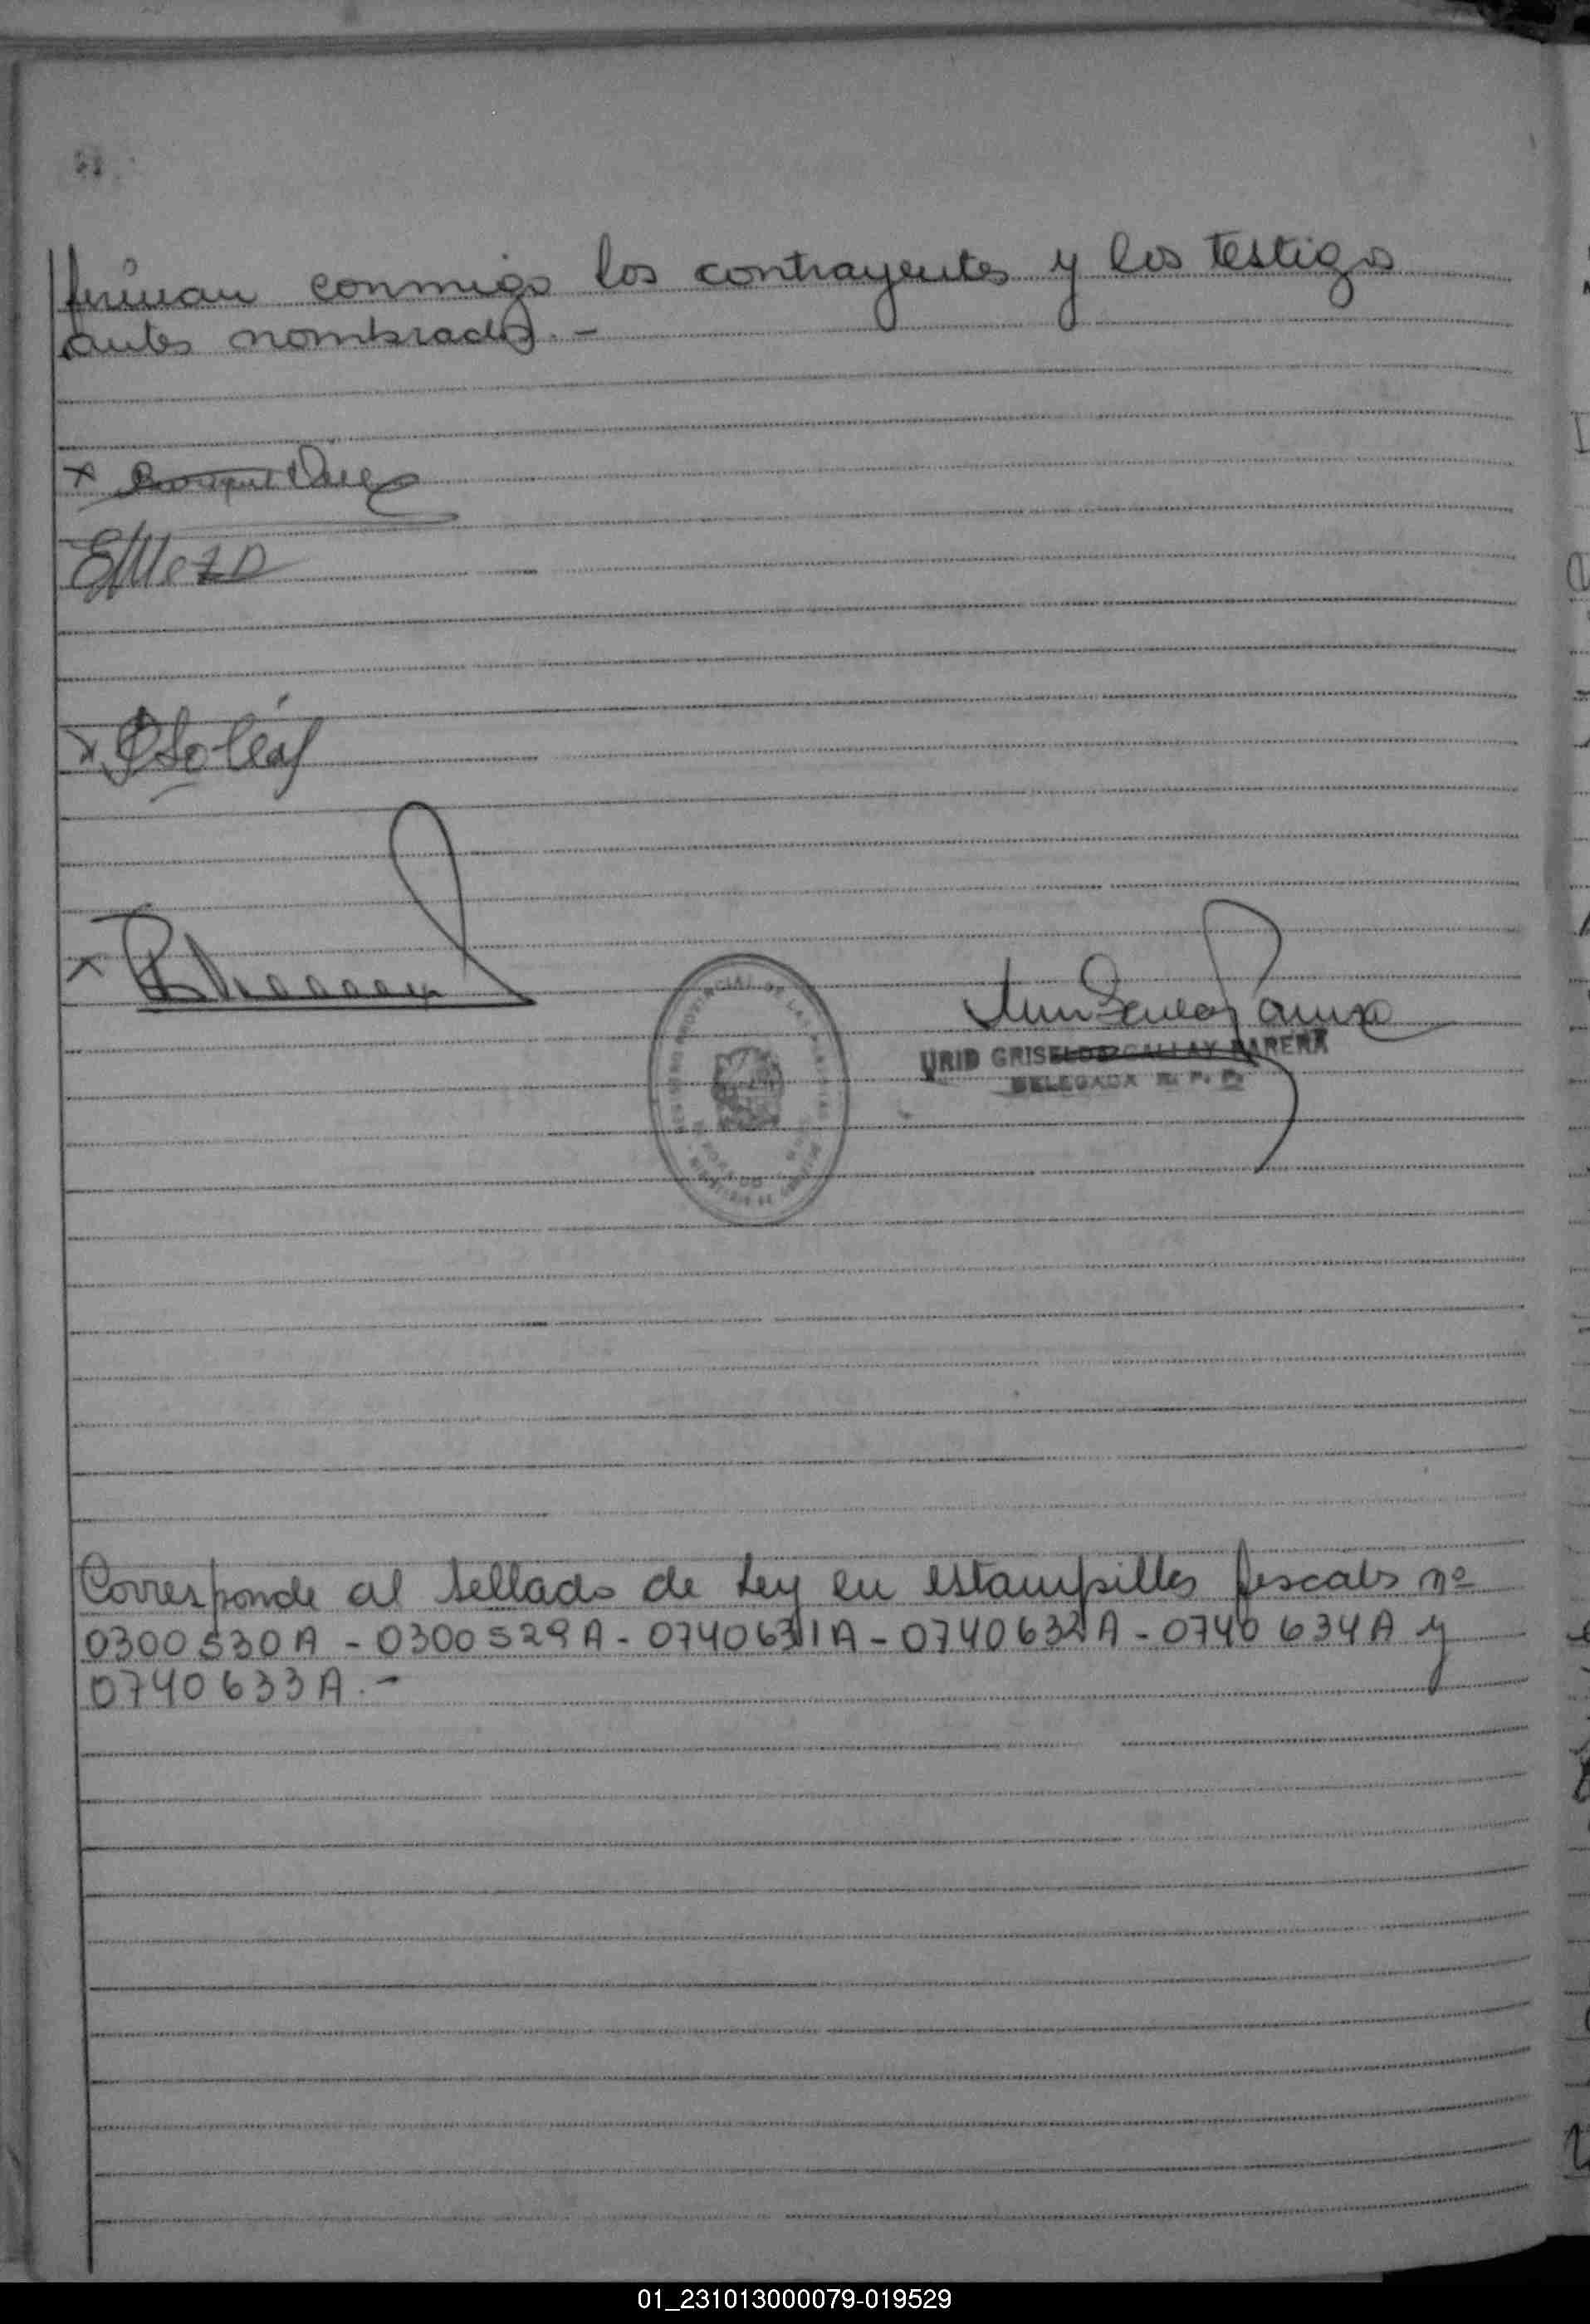 firman conmigo los contrayentes y los testigos
antes nombrados. -
x
EMozo
x
x
URID GRISELDA GALLAY PARERA
DELEGADA R. P. P.
Corresponde al sellado de Ley en estampillas fiscales nº
0300530A - 0300529A - 0740631A - 0740632A - 0740634A y
0740633A. -
01_231013000079-019529